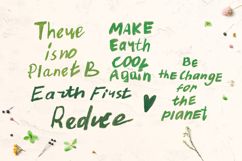 There
is no
Planet B
MAKE
Earth
COOL
Again
Be
the Change
for
the
planet
Earth First
Reduce